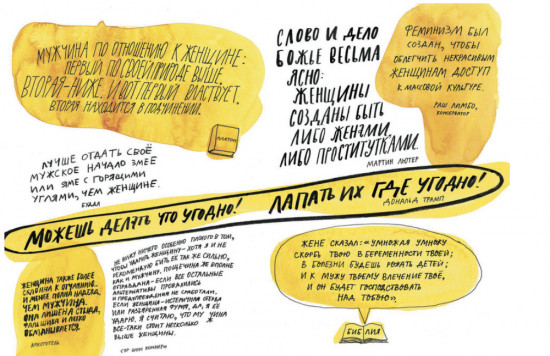 МУЖЧИНА ПО ОТНОШЕНИЮ К ЖЕНЩИНЕ:
ПЕРВЫЙ ПО СВОЕЙ ПРИРОДЕ ВЫШЕ,
ВТОРАЯ-НИЖЕ. И ВОТ ПЕРВЫЙ ВЛАСТВУЕТ,
ВТОРАЯ НАХОДИТСЯ В ПОДЧИНЕНИИ.
ПЛАТОН
СЛОВО И ДЕЛО
БОЖЬЕ ВЕСЬМА
ЯСНО:
ЖЕНЩИНЫ
СОЗДАНЫ БЫТЬ
ЛИБО ЖЕНАМИ,
ЛИБО ПРОСТИТУТКАМИ.
МАРТИН ЛЮТЕР
ФЕМИНИЗМ БЫЛ
СОЗДАН, ЧТОБЫ
ОБЛЕГЧИТЬ НЕКРАСИВЫМ
ЖЕНЩИНАМ ДОСТУП
К МАССОВОЙ КУЛЬТУРЕ.
РАШ ЛИМБО,
КОНСЕРВАТОР
ЛУЧШЕ ОТДАТЬ СВОЁ
МУЖСКОЕ НАЧАЛО ЗМЕЕ
ИЛИ ЯМЕ С ГОРЯЩИМИ
УГЛЯМИ, ЧЕМ ЖЕНЩИНЕ.
БУДДА
МОЖЕШЬ ДЕЛАТЬ ЧТО УГОДНО! ЛАПАТЬ ИХ ГДЕ УГОДНО!
ДОНАЛЬД ТРАМП
ЖЕНЩИНА ТАКЖЕ БОЛЕЕ
СКЛОННА К ОТЧАЯНИЮ
И МЕНЕЕ ПОЛНА НАДЕЖД,
ЧЕМ МУЖЧИНА.
ОНА ЛИШЕНА СТЫДА,
ФАЛЬШИВА И ЛЕГКО
ОБМАНЫВАЕТСЯ.
АРИСТОТЕЛЬ
НЕ ВИЖУ НИЧЕГО ОСОБЕННО ПЛОХОГО В ТОМ,
ЧТОБЫ УДАРИТЬ ЖЕНЩИНУ - ХОТЯ Я И НЕ
РЕКОМЕНДУЮ БИТЬ ЕЁ ТАК ЖЕ СИЛЬНО,
КАК И МУЖЧИНУ. ПОЩЕЧИНА ЖЕ ВПОЛНЕ
ОПРАВДАНА - ЕСЛИ ВСЕ ОСТАЛЬНЫЕ
АЛЬТЕРНАТИВЫ ПРОВАЛИЛИСЬ
И ПРЕДУПРЕЖДЕНИЯ НЕ СРАБОТАЛИ.
ЕСЛИ ЖЕНЩИНА - ИСТЕРИЧНАЯ СТЕРВА
ИЛИ РАЗЪЯРЕННАЯ ФУРИЯ, ДА, Я ЕЁ
УДАРЮ. Я СЧИТАЮ, ЧТО МУЖЧИНА
ВСЕ-ТАКИ СТОИТ НЕСКОЛЬКО
ВЫШЕ ЖЕНЩИНЫ.
СЭР ШОН КОННЕРИ
ЖЕНЕ СКАЗАЛ: «УМНОЖАЯ УМНОЖУ
СКОРБЬ ТВОЮ В БЕРЕМЕННОСТИ ТВОЕЙ;
В БОЛЕЗНИ БУДЕШЬ РОЖАТЬ ДЕТЕЙ;
И К МУЖУ ТВОЕМУ ВЛЕЧЕНИЕ ТВОЁ,
И ОН БУДЕТ ГОСПОДСТВОВАТЬ
НАД ТОБОЮ».
БИБЛИЯ